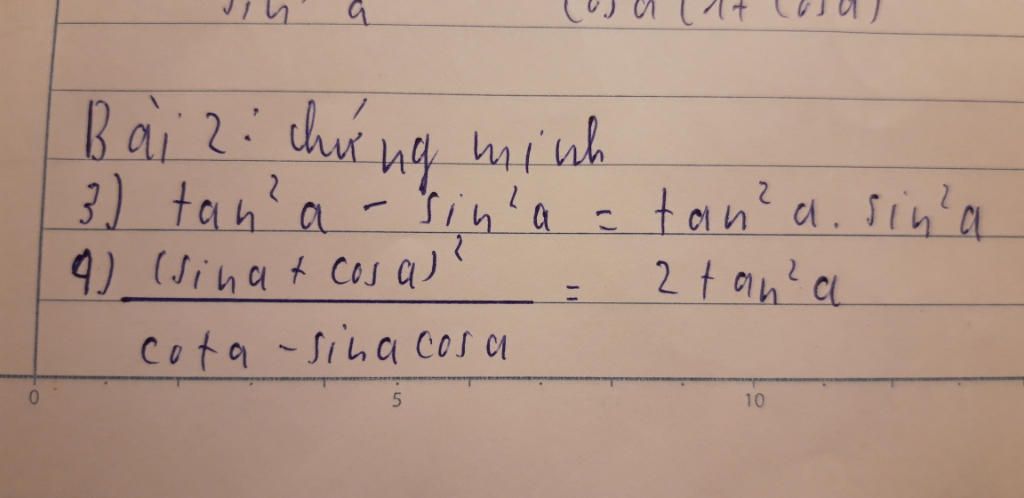 sin² a cos a (1 + cos a)
Bài 2: chứng minh
3) tan² a - sin² a = tan² a . sin² a
4) (sin a + cos a)² = 2 tan² a
cot a - sin a cos a
0 5 10